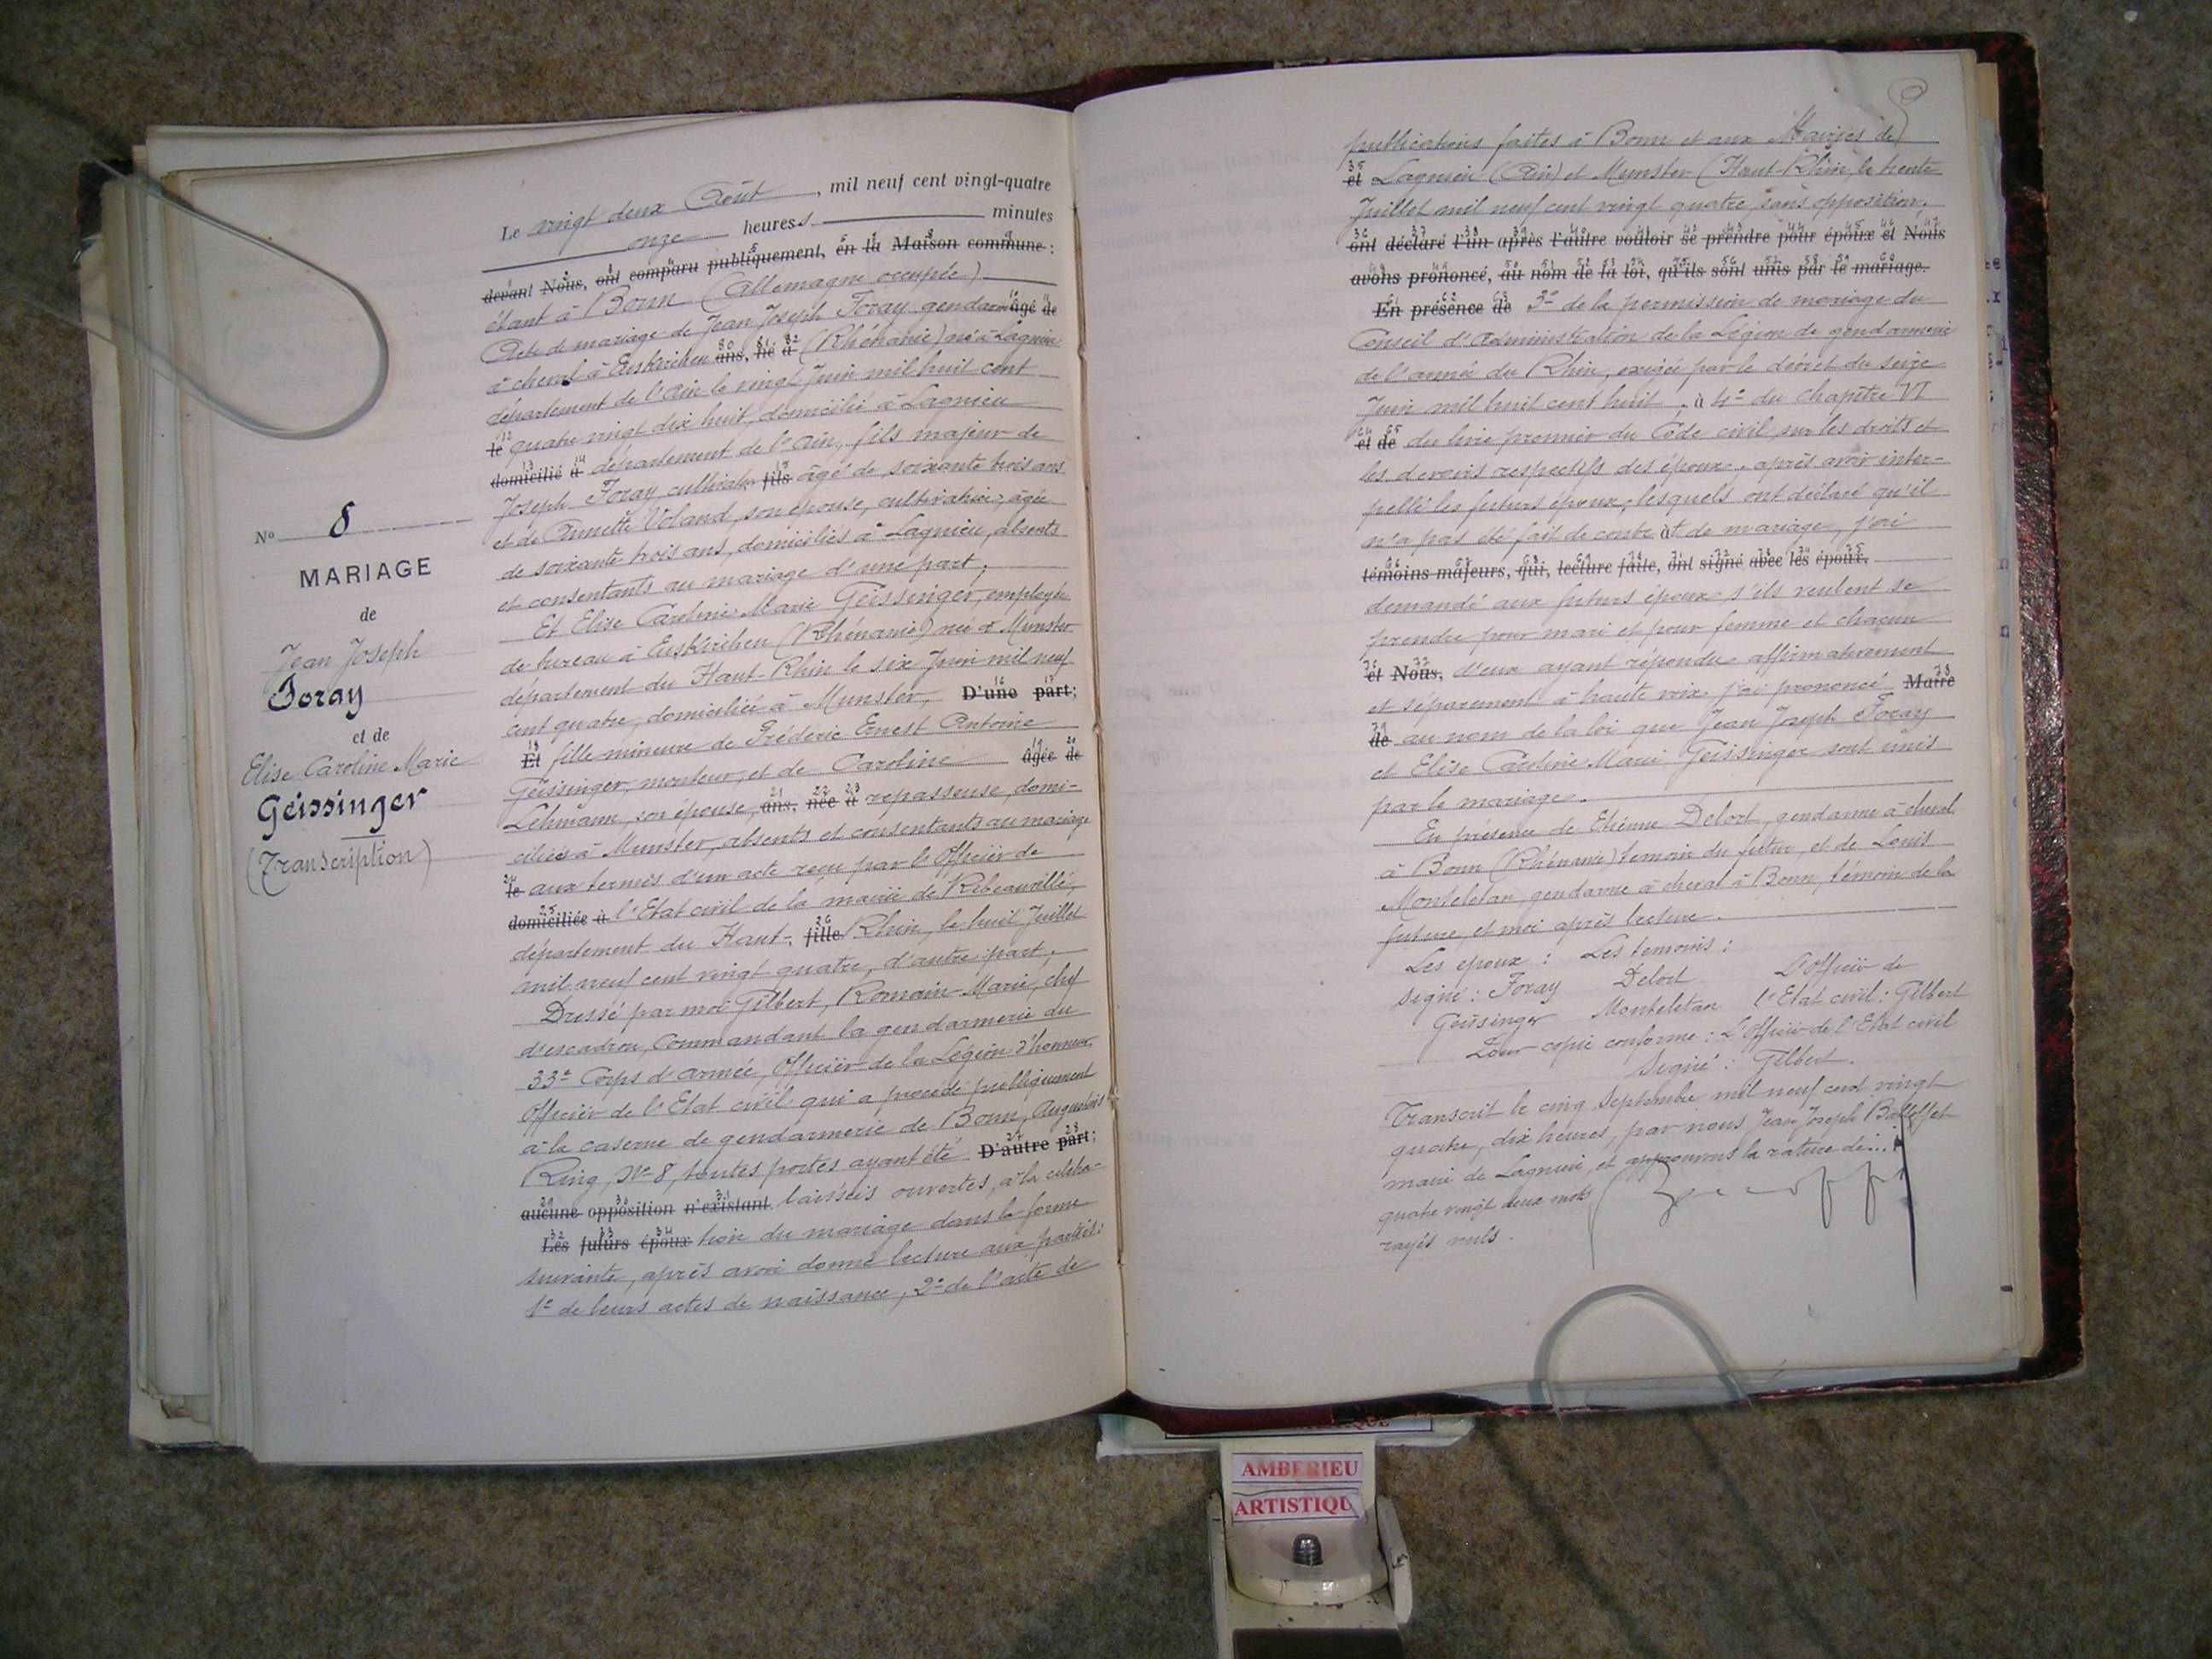 N° 8
MARIAGE
de
Jean Joseph
Foray
et de
Elise Caroline Marie
Geissinger
(Transcription)
Le vingt deux Août, mil neuf cent vingt-quatre
onze heures minutes
devant Nous, ont comparu publiquement, en la Maison commune :
étant à Bonn (Allemagne occupée)
Acte de mariage de Jean Joseph Foray gendarme âgé de
à cheval à Euskirchen ans, né à (Rhénanie) né à Lagnieu
département de l'Ain le vingt Juin mil huit cent
le quatre vingt dix huit, domicilié à Lagnieu
domicilié à département de l'Ain, fils majeur de
Joseph Foray cultivateur fils âgé de soixante trois ans
et de Annette Voland, son épouse, cultivatrice, âgée
de soixante trois ans, domiciliés à Lagnieu, absents
et consentants au mariage d'une part,
Et Elise Caroline Marie Geissinger, employée
de bureau à Euskirchen (Rhénanie) née à Munster
département du Haut-Rhin le six Juin mil neuf
cent quatre, domiciliée à Munster, D'une part;
Et fille mineure de Fréderic Ernest Antoine
Geissinger, monteur, et de Caroline âgée de
Lehmann, son épouse, ans, née à repasseuse, domi-
ciliés à Munster, absents et consentants au mariage
le aux termes d'un acte reçu par l'Officier de
domiciliée à l'Etat civil de la mairie de Ribeauvillé,
département du Haut- fille Rhin, le huit Juillet
mil neuf cent vingt quatre, d'autre part,
Dressé par moi Gilbert, Romain Marie, chef
d'escadron, Commandant la gendarmerie du
33e Corps d'armée, Officier de la Légion d'honneur,
Officier de l'Etat civil qui a procédé publiquement
à la caserne de gendarmerie de Bonn,
Ring, N° 8, toutes portes ayant été D'autre part;
aucune opposition n'existant. laissées ouvertes, à la célébra-
Les futurs époux tion du mariage dans la forme
suivante, après avoir donné lecture aux parties:
1° de leurs actes de naissance, 2° de l'acte de
9
publications faites à Bonn et aux Mairies de
et Lagnieu (Ain) et Munster (Haut-Rhin, le trente
Juillet mil neuf cent vingt quatre, sans opposition,
ont déclaré l'un après l'autre vouloir se prendre pour époux et Nous
avons prononcé, au nom de la loi, qu'ils sont unis par le mariage.
En présence de 3° de la permission de mariage du
Conseil d'Administration de la Légion de gendarmerie
de l'armée du Rhin, exigée par le décret du seize
Juin mil huit cent huit, à 4° du chapitre VI
et de du livre premier du Code civil sur les droits et
les devoirs respectifs des époux, après avoir inter-
pellé les futurs époux, lesquels ont déclaré qu'il
n'a pas été fait de contr at de mariage, j'ai
témoins majeurs, qui, lecture faite, ont signé avec les époux.
demandé aux futurs époux s'ils veulent se
prendre pour mari et pour femme et chacun
et Nous, d'eux ayant répondu affirmativement
et séparement à haute voix, j'ai prononcé Maire
de au nom de la loi que Jean Joseph Foray
et Elise Caroline Marie Geissinger sont unis
par le mariage.
En présence de Etienne Delort, gendarme à cheval
à Bonn (Rhénanie) temoin du futur, et de Louis
Monteletan, gendarme à cheval à Bonn, témoin de la
future, et moi après lecture.
Les epoux : Les temoins :
signé : Foray Delort L'Officier de
Geissinger Monteletan l'Etat civil : Gilbert
Pour copie conforme : L'Officier de l'Etat civil
Signé : Gilbert.
Transcrit le cinq Septembre mil neuf cent vingt
quatre, dix heures, par nous Jean Joseph Balloffet
maire de Lagnieu, et approuvons la rature de
quatre vingt deux mots
rayés nuls.
AMBERIEU
ARTISTIQU